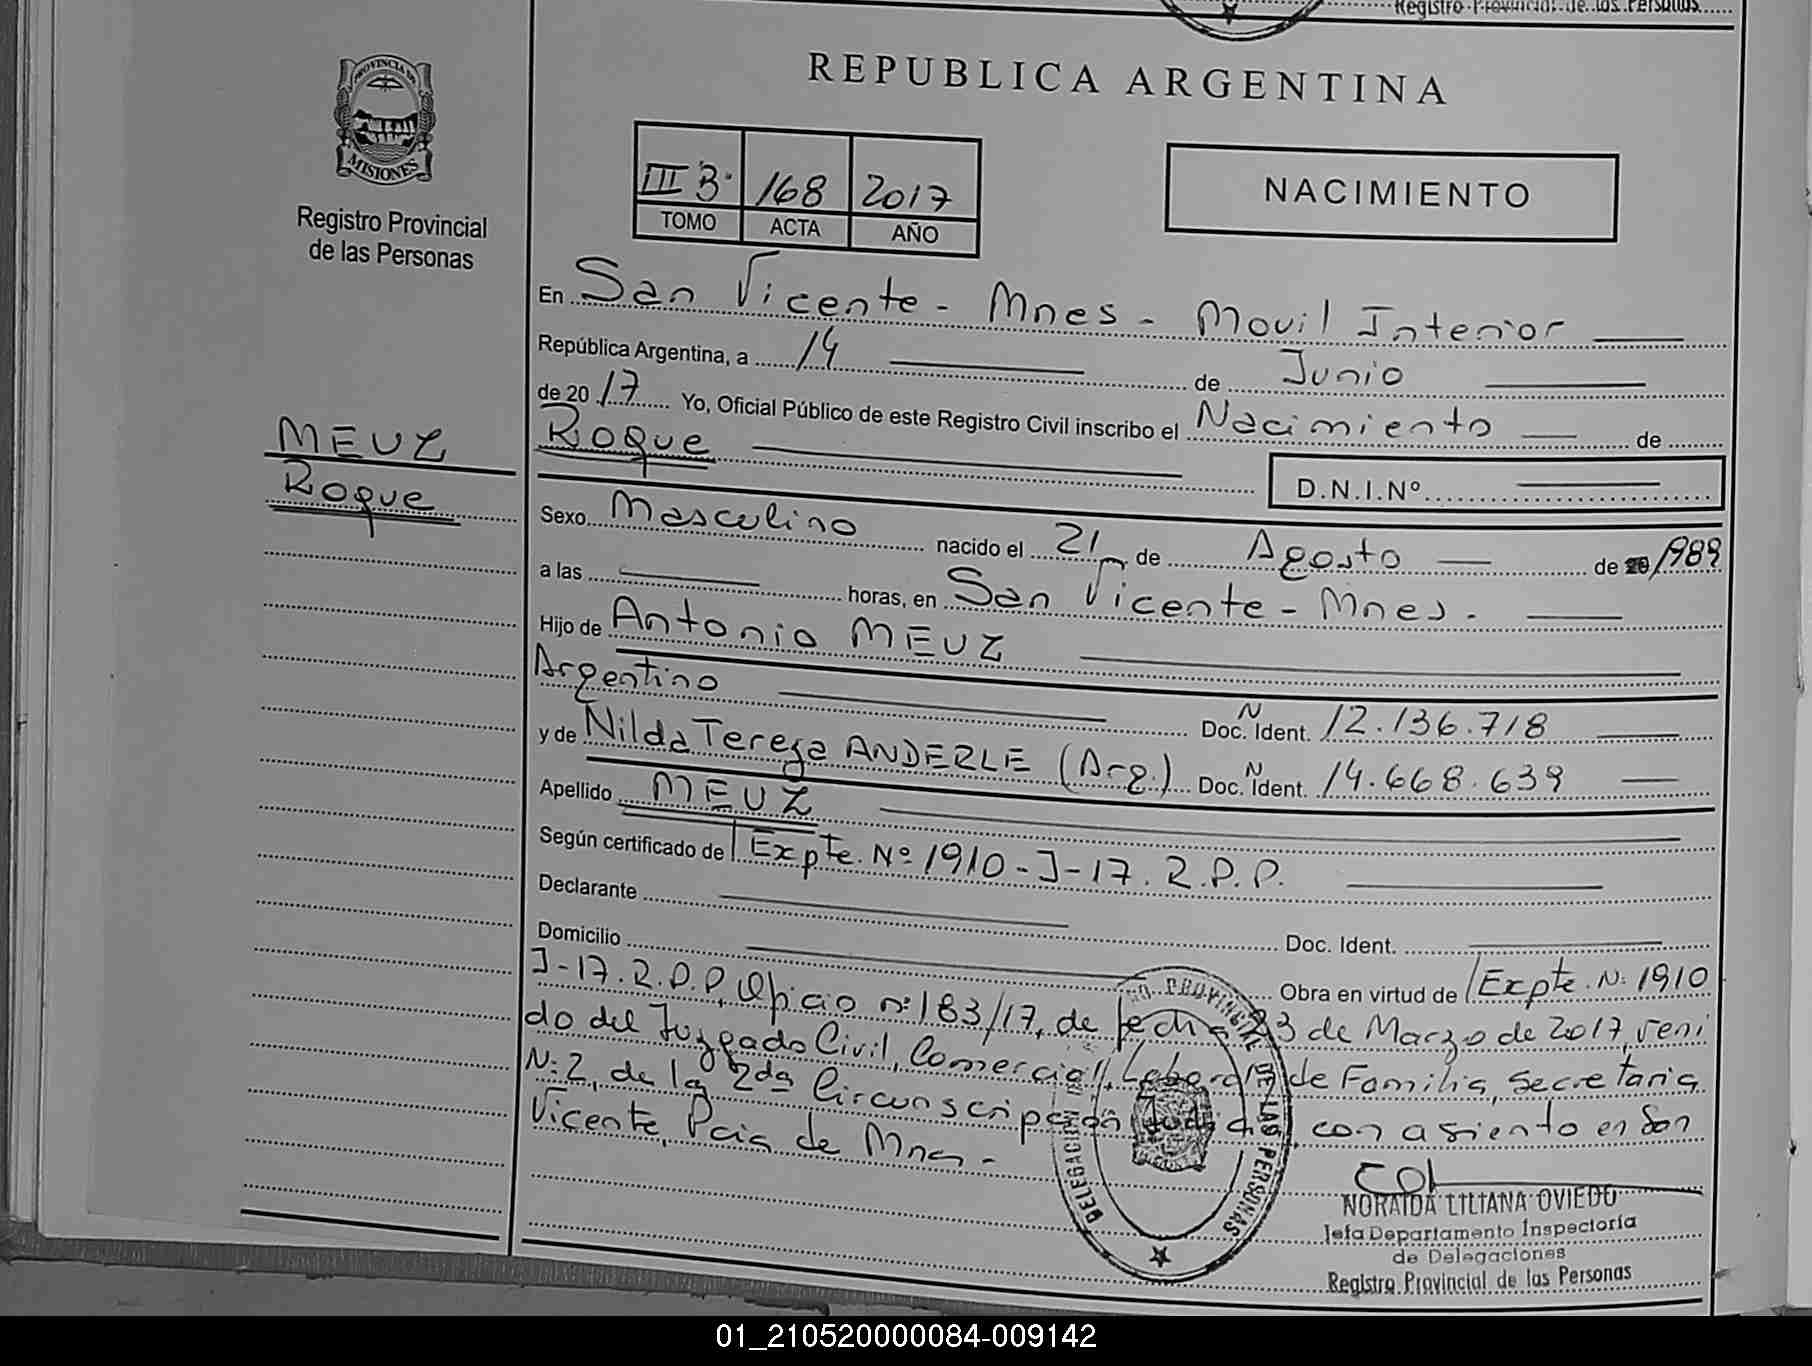 Registro Provincial de las Personas
REPUBLICA ARGENTINA
PROVINCIA DE
MISIONES
Registro Provincial
de las Personas
III B. 168 2017
TOMO ACTA AÑO
NACIMIENTO
En San Vicente - Mnes - Movil Interior
República Argentina, a 14 de Junio
de 20 17 Yo, Oficial Público de este Registro Civil inscribo el Nacimiento de
MEUZ
Roque
Roque
D.N.I.Nº
Sexo Masculino nacido el 21 de Agosto de 20 1989
a las horas, en San Vicente - Mnes.
Hijo de Antonio MEUZ
Argentino N Doc. Ident. 12.136.718
y de Nilda Teresa ANDERLE (Arg.) N Doc. Ident. 14.668.639
Apellido MEUZ
Según certificado de Expte. Nº 1910-J-17. R.P.P.
Declarante
Domicilio Doc. Ident.
Obra en virtud de Expte. N: 1910
J-17. R.P.P, Oficio nº: 183/17, de fecha 23 de Marzo de 2017, veni
do del Juzgado Civil, Comercial, Laboral de Familia, Secretaria
N: 2, de la 2da Circunscripción Judicial, con asiento en San
Vicente, Pcia de Mnes -
DELEGACION REGISTRO PROVINCIAL DE LAS PERSONAS
NORAIDA LILIANA OVIEDO
Jefa Departamento Inspectoría
de Delegaciones
Registro Provincial de las Personas
01_210520000084-009142